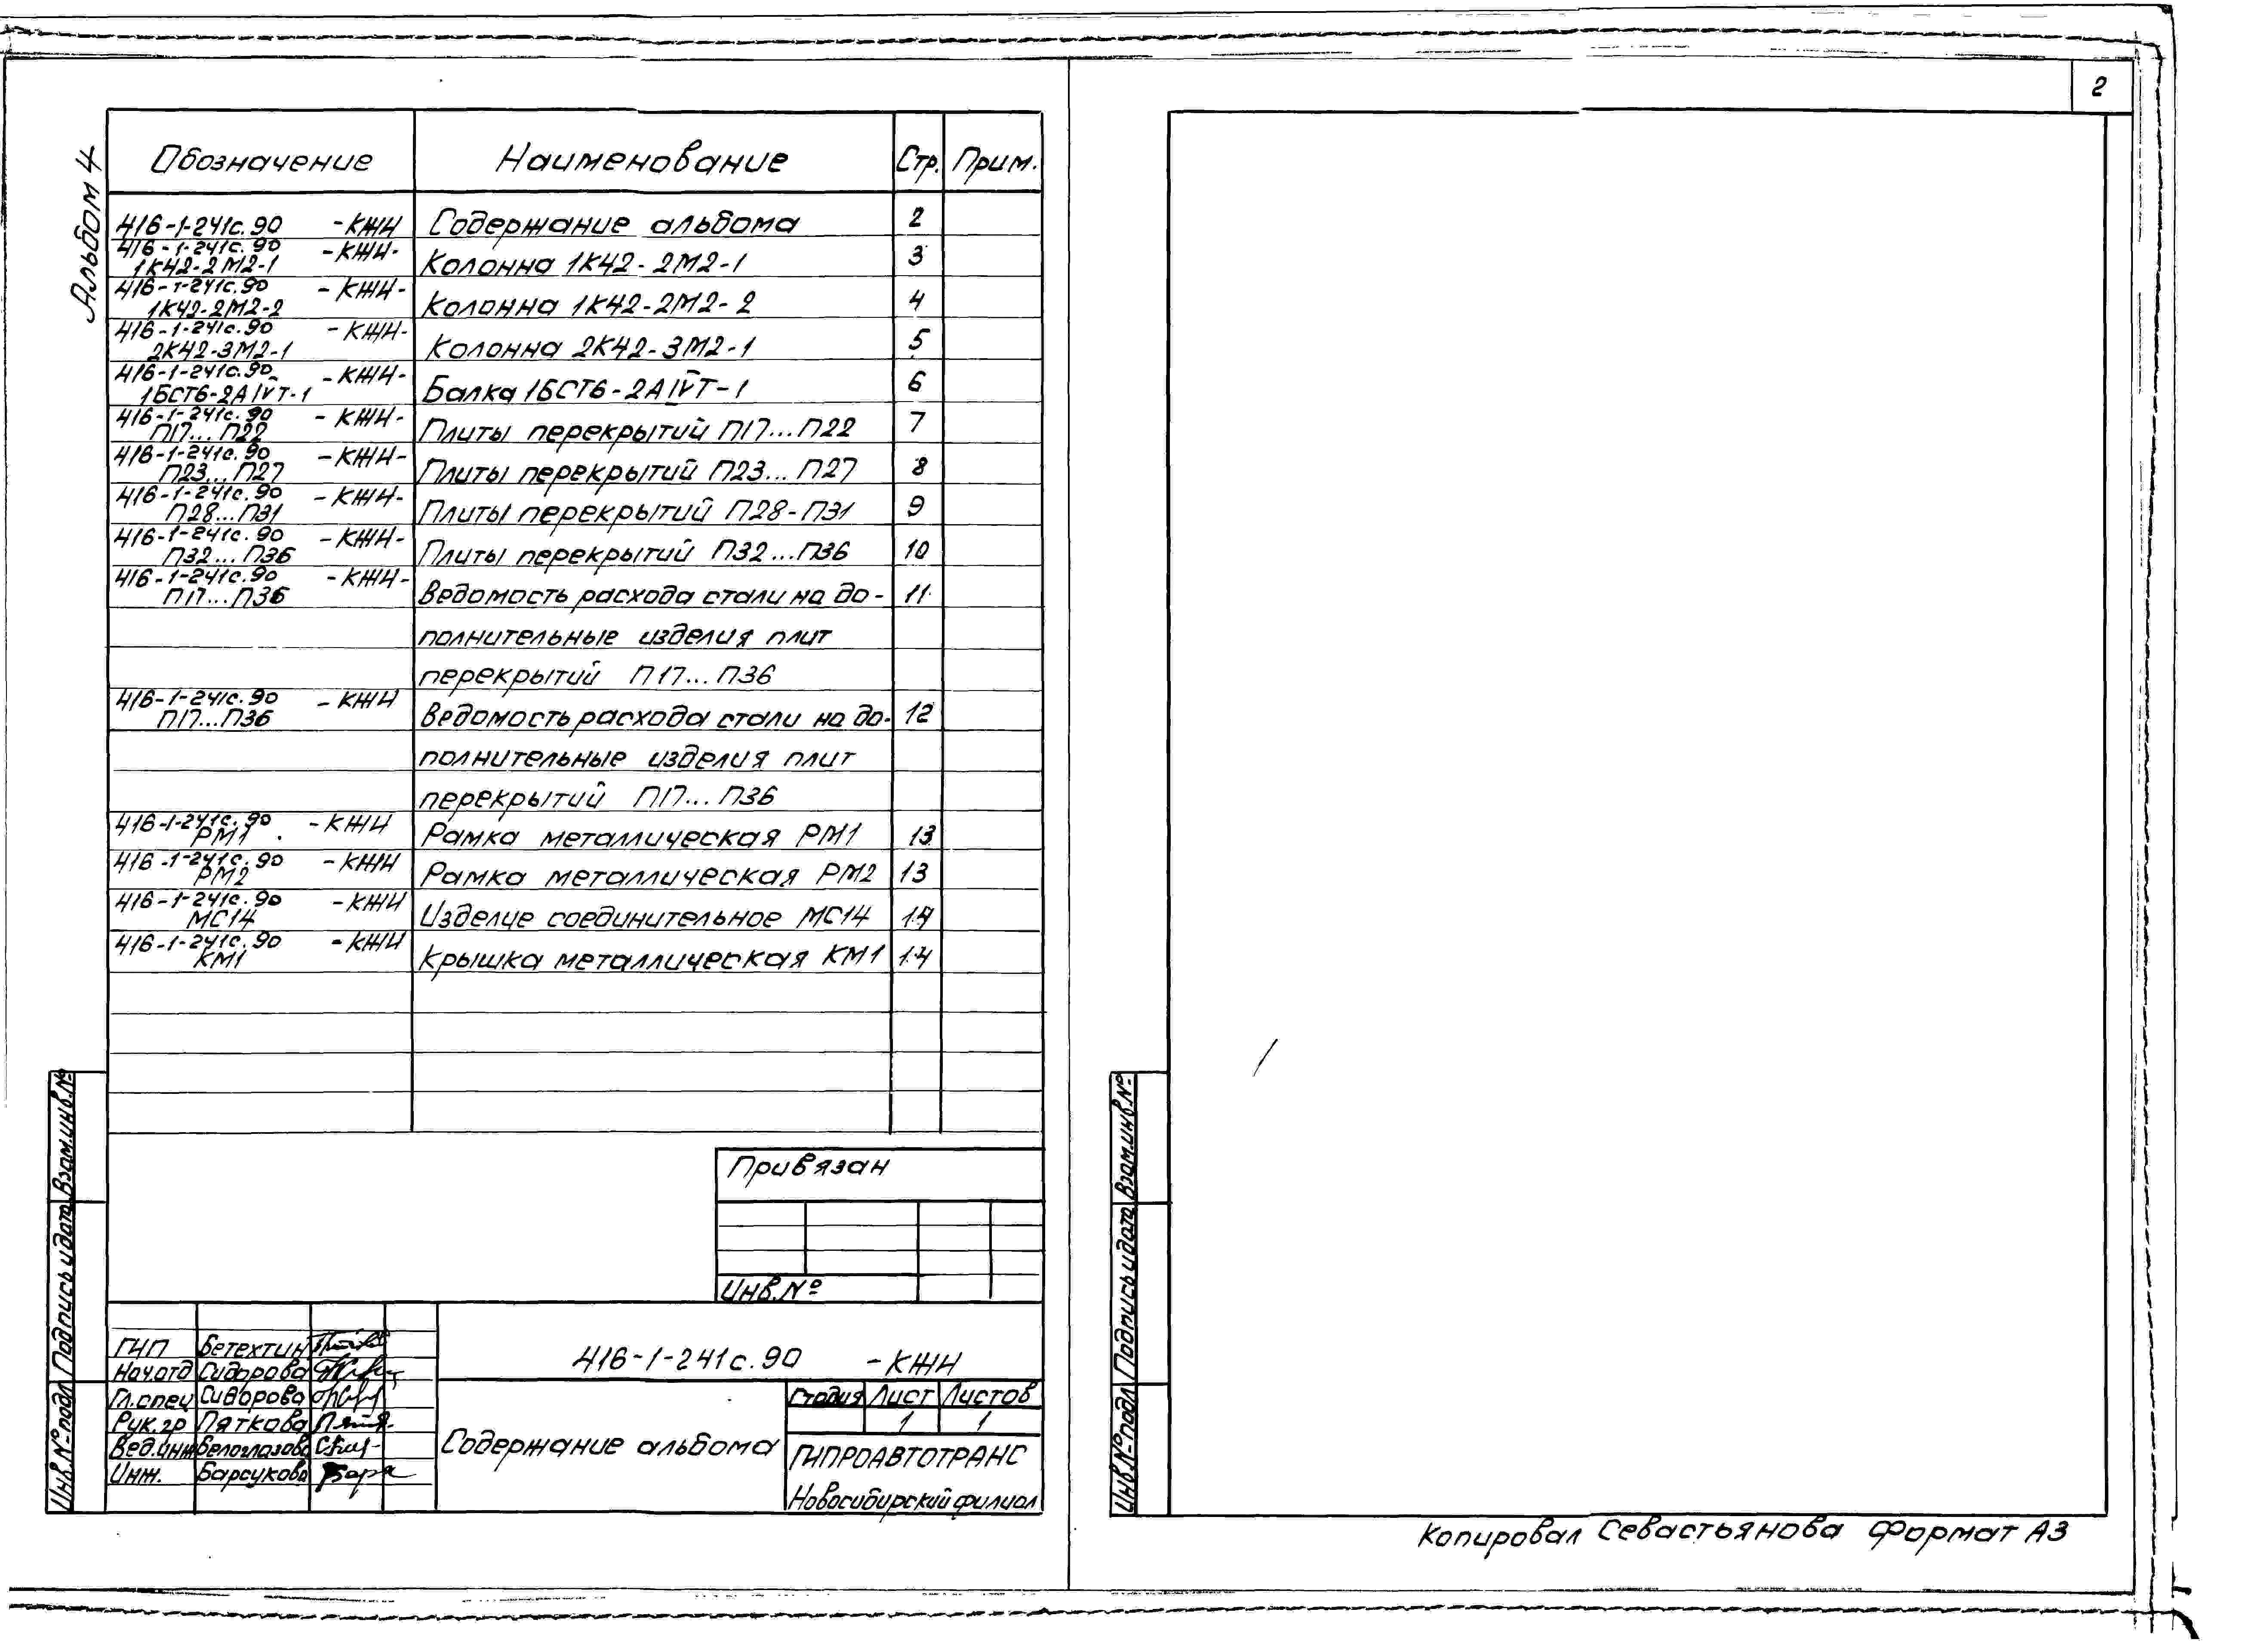 2
Альбом 4
Обозначение Наименование Стр. Прим.
416-1-241с.90 -КЖИ Содержание альбома 2
416-1-241с.90 -КЖИ-
1К42-2М2-1 Колонна 1К42-2М2-1 3
416-1-241с.90 -КЖИ-
1К42-2М2-2 Колонна 1К42-2М2-2 4
416-1-241с.90 -КЖИ-
2К42-3М2-1 Колонна 2К42-3М2-1 5
416-1-241с.90 -КЖИ-
1БСТ6-2АIVТ-1 Балка 1БСТ6-2АIVТ-1 6
416-1-241с.90 -КЖИ-
П17...П22 Плиты перекрытий П17...П22 7
416-1-241с.90 -КЖИ-
П23...П27 Плиты перекрытий П23...П27 8
416-1-241с.90 -КЖИ-
П28...П31 Плиты перекрытий П28-П31 9
416-1-241с.90 -КЖИ-
П32...П36 Плиты перекрытий П32...П36 10
416-1-241с.90 -КЖИ-
П17...П36 Ведомость расхода стали на до- 11
полнительные изделия плит
перекрытий П17...П36
416-1-241с.90 -КЖИ
П17...П36 Ведомость расхода стали на до- 12
полнительные изделия плит
перекрытий П17...П36
416-1-241с.90 -КЖИ
РМ1 Рамка металлическая РМ1 13
416-1-241с.90 -КЖИ
РМ2 Рамка металлическая РМ2 13
416-1-241с.90 -КЖИ
МС14 Изделие соединительное МС14 14
416-1-241с.90 -КЖИ
КМ1 Крышка металлическая КМ1 14
Привязан
Инв.№
ГИП Бетехтин
Нач.отд Сидорова
Гл.спец Сидорова
Рук.гр Пяткова
Вед.инж Белоглазова
Инж. Барсукова
416-1-241с.90 -КЖИ
Содержание альбома
Стадия Лист Листов
1 1
ГИПРОАВТОТРАНС
Новосибирский филиал
Инв.№ подл Подпись и дата Взам.инв.№
Инв.№ подл Подпись и дата Взам.инв.№
Копировал Севастьянова Формат А3